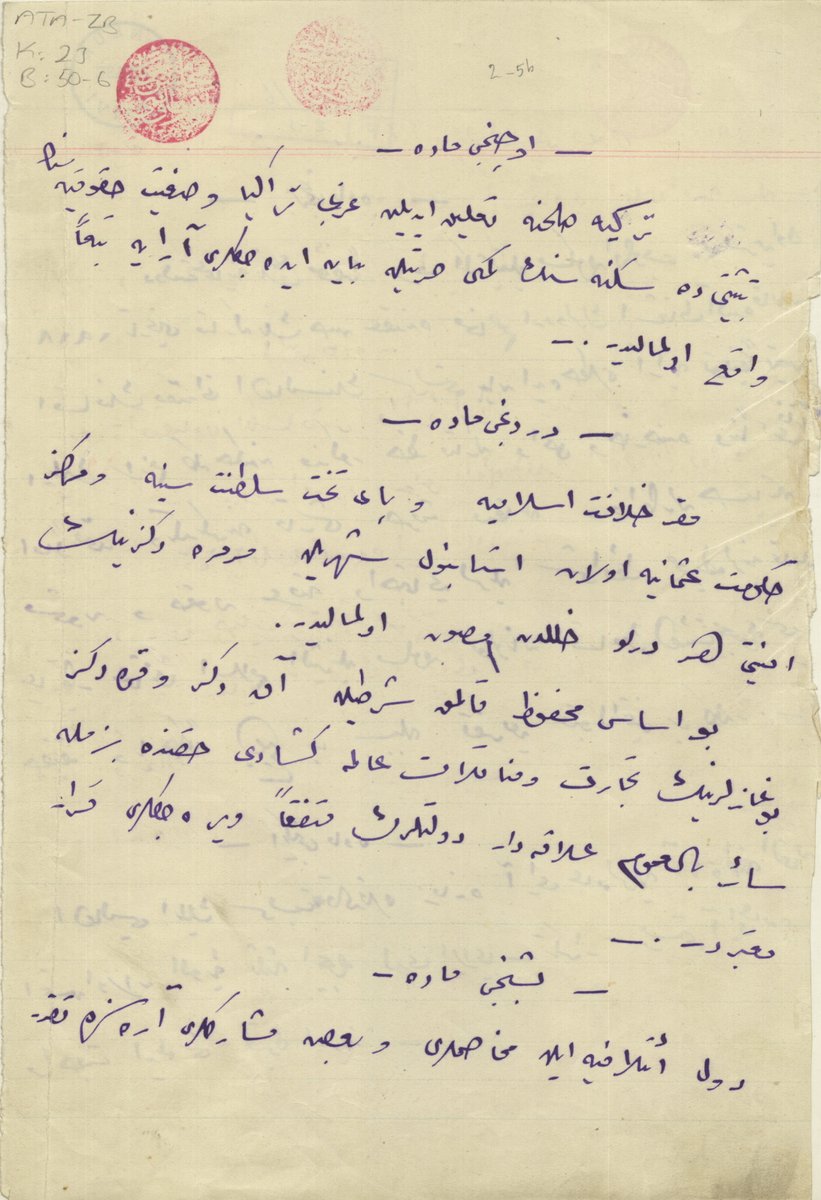 ATA-ZB
K: 23
B: 50-6
2-5b
— اوچنجی ماده —
تركیه صلحنه تعلیق ایدیلن غربی تراكیا وضعیت حقوقیه سنك
تثبیتی ده سكنه سنك كمال حریتله بیان ایده جكلری آرایه تبعاً
واقع اولمالیدر.—
— دردنجی ماده —
مقر خلافت اسلامیه و پای تخت سلطنت سنیه و مركز
حكومت عثمانیه اولان استانبول شهریله مرمره دكزینك
امنیتی هر درلو خللدن مصون اولمالیدر.
بو اساس محفوظ قالمق شرطیله آق دكز و قره دكز
بوغازلرینك تجارت و مناقلات عالمه كشادی حقنده بزمله
سائر بالعموم علاقه دار دولتلرك متفقاً ویره جكلری قرار
معتبردر.—
— بشنجی ماده —
دول ائتلافیه ایله مخاصملری و بعض مشاركلری آره سنده تقرر